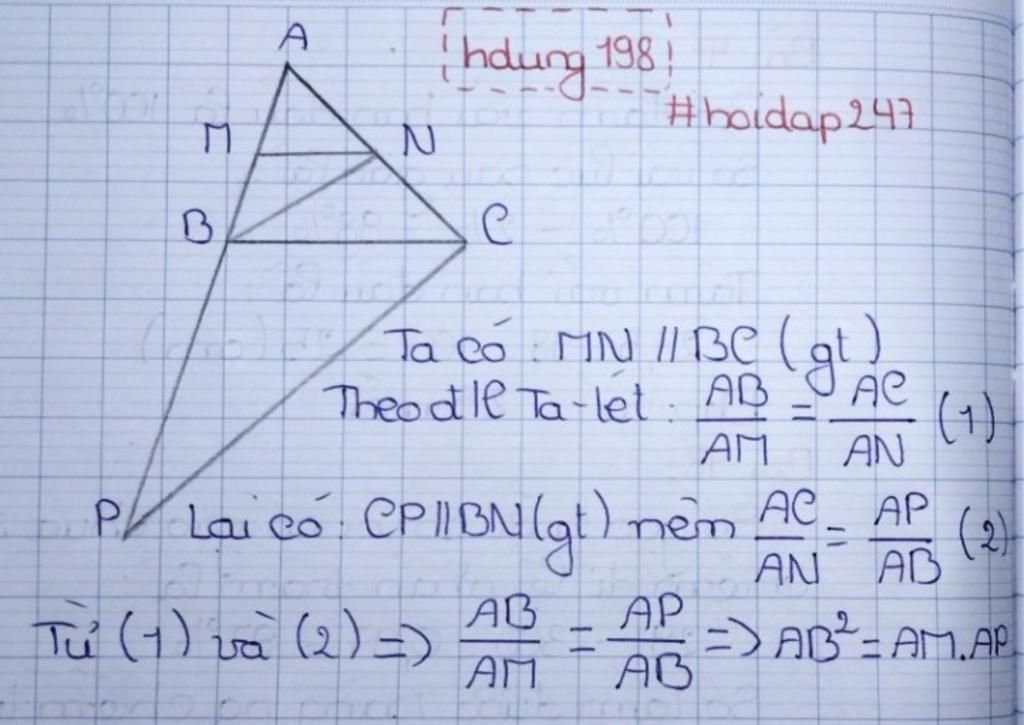 hdung 198
#hoidap247
A
M N
B C
P
Ta có : MN // BC (gt)
Theo đlí Ta-lét : AB/AM = AC/AN (1)
Lại có : CP // BN (gt) nên AC/AN = AP/AB (2)
Từ (1) và (2) => AB/AM = AP/AB => AB² = AM.AP